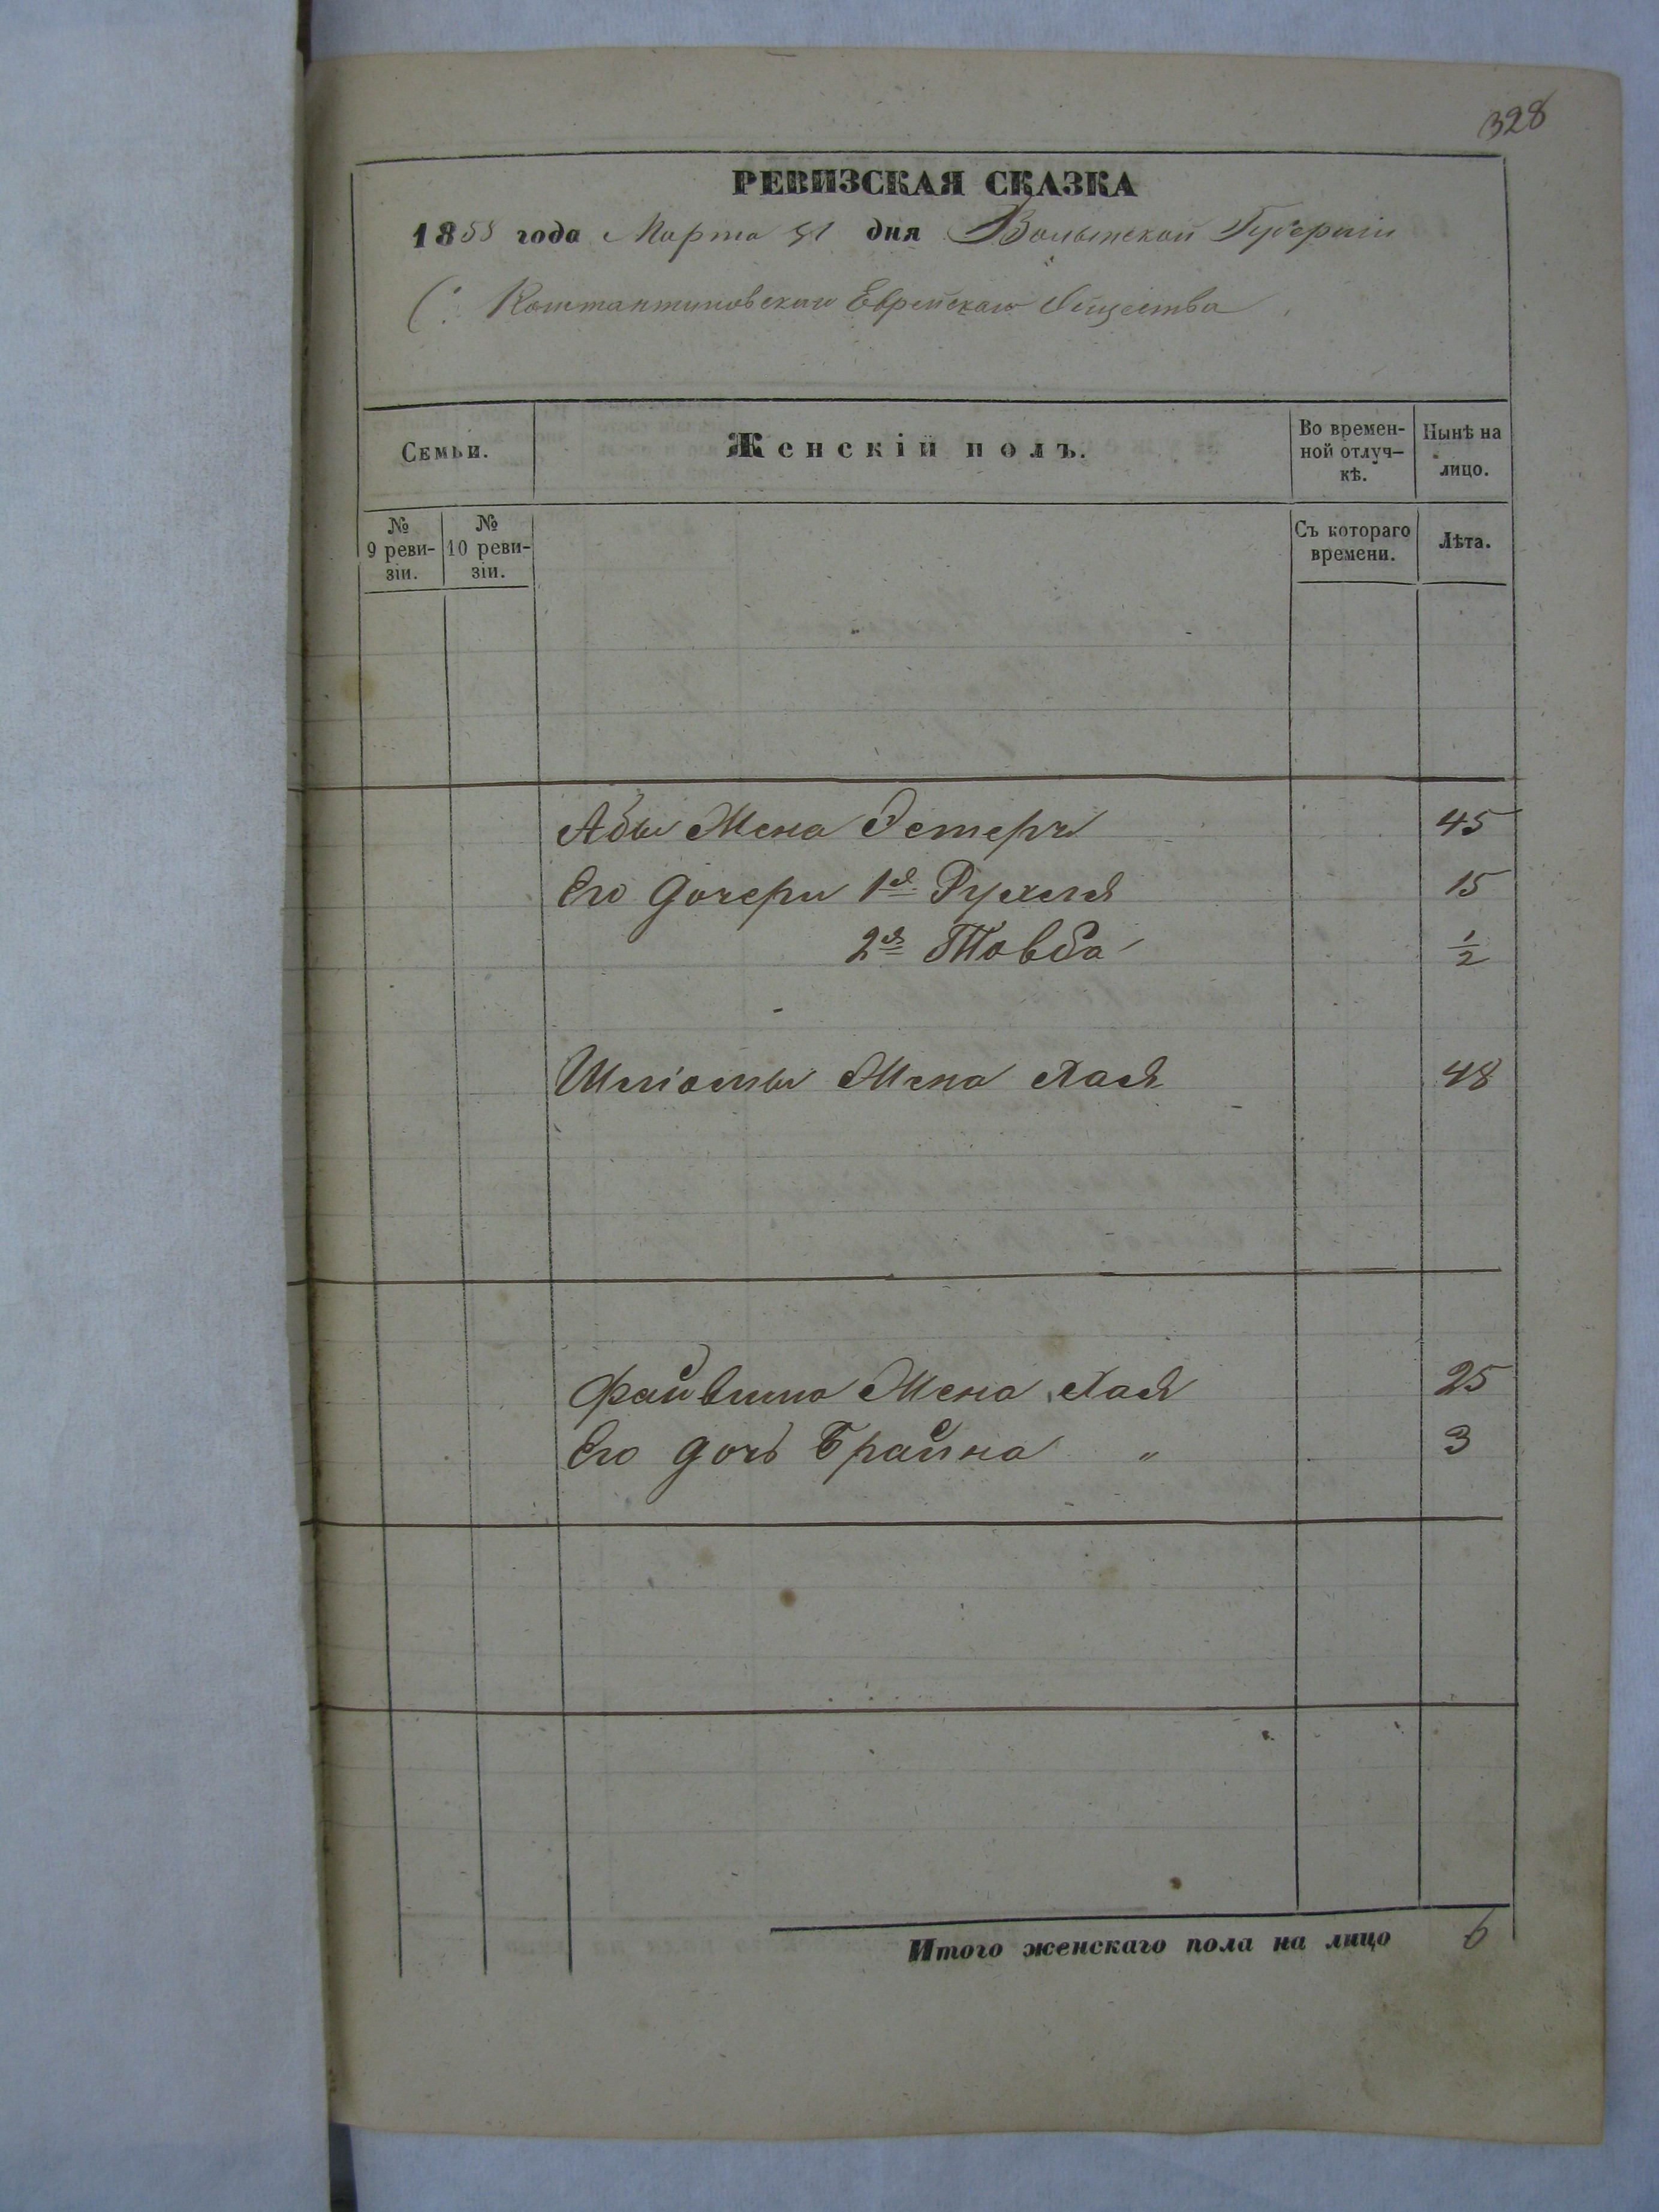 328
РЕВИЗСКАЯ СКАЗКА
1858 года Марта 31 дня Волынской Губерніи
С: Константиновскаго Еврейскаго Общества
Семьи.
Женскій полъ.
Во времен-
ной отлуч-
кѣ.
Нынѣ на
лицо.
№
9 реви-
зіи.
№
10 реви-
зіи.
Съ котораго
времени.
Лѣта.
Абы Жена Эстеръ 45
Его Дочери 1я Рухля 15
2я Товба ½
Шліомы Жена Хая 48
Файвиша Жена Хая 25
Его дочь Брайна " 3
Итого женскаго пола на лицо 6